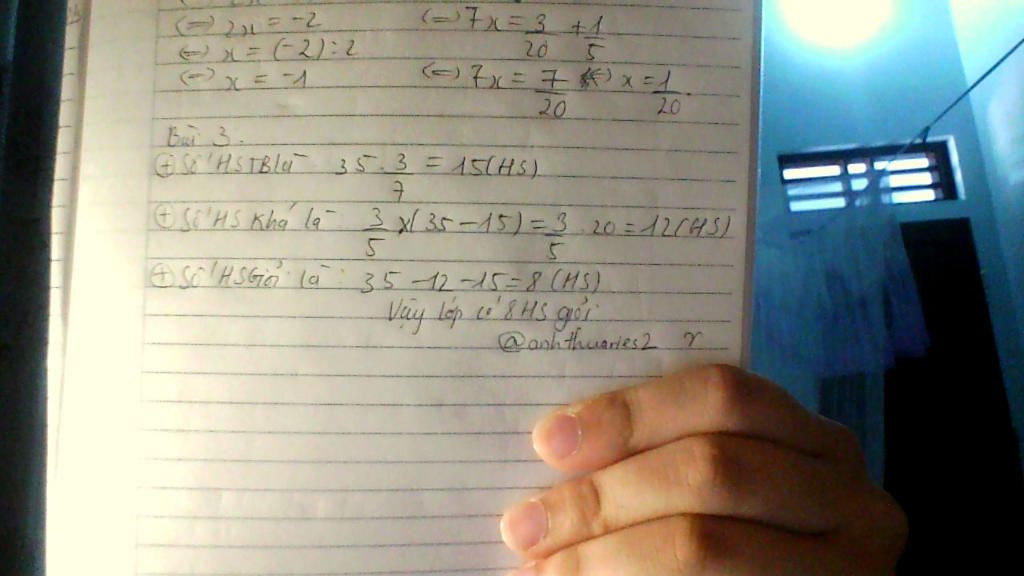 (=) 2x = -2
(=) 7x = 3/20 + 1/5
(=) x = (-2) : 2
(=) x = -1
(=) 7x = 7/20 (=) x = 1/20.
Bài 3.
⊕ Số HSTB là 35 . 3/7 = 15(HS)
⊕ Số HS Khá là 3/5 x(35 - 15) = 3/5 . 20 = 12(HS)
⊕ Số HSGiỏi là : 35 - 12 - 15 = 8 (HS)
Vậy lớp có 8 HS giỏi
@anhthuaries2